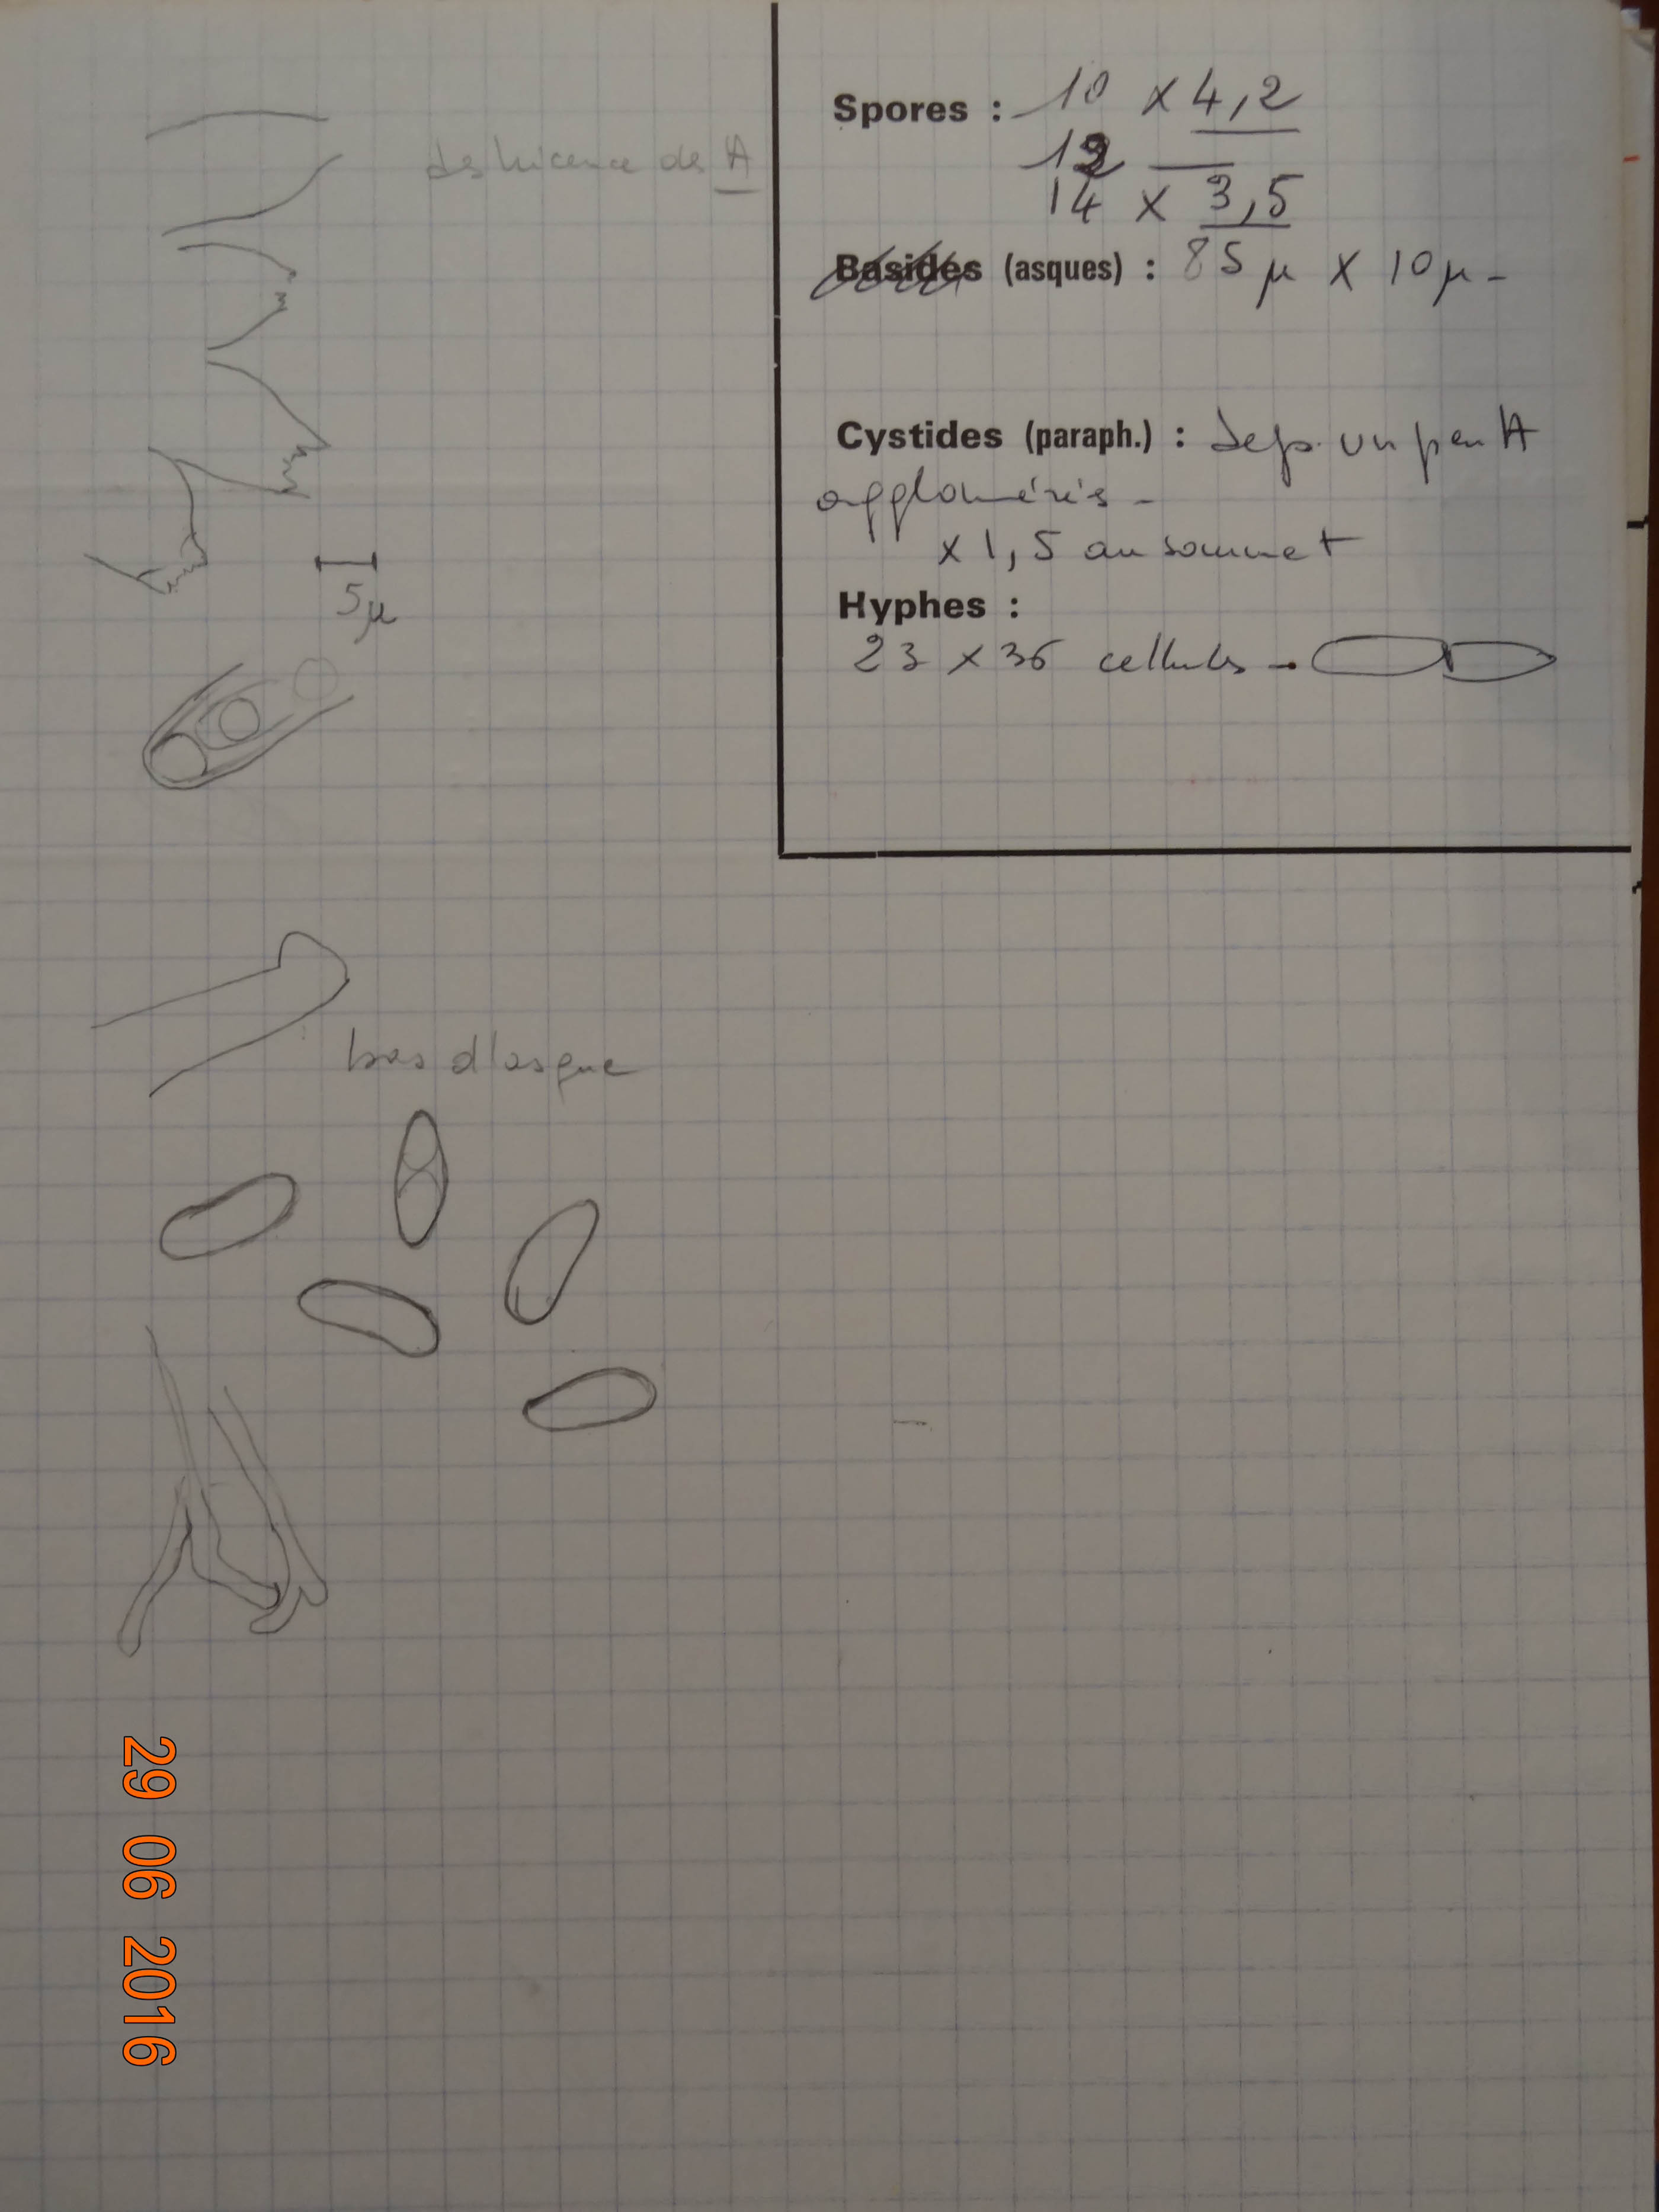 deshicence des A
Spores : 10 x 4,2
12
14 x 3,5
Basides (asques) : 85 µ x 10 µ -
Cystides (paraph.) : un peu
agglomérés -
x 1,5 au sommet
Hyphes :
23 x 36 cellules -
5µ
bas d'asque
29 06 2016